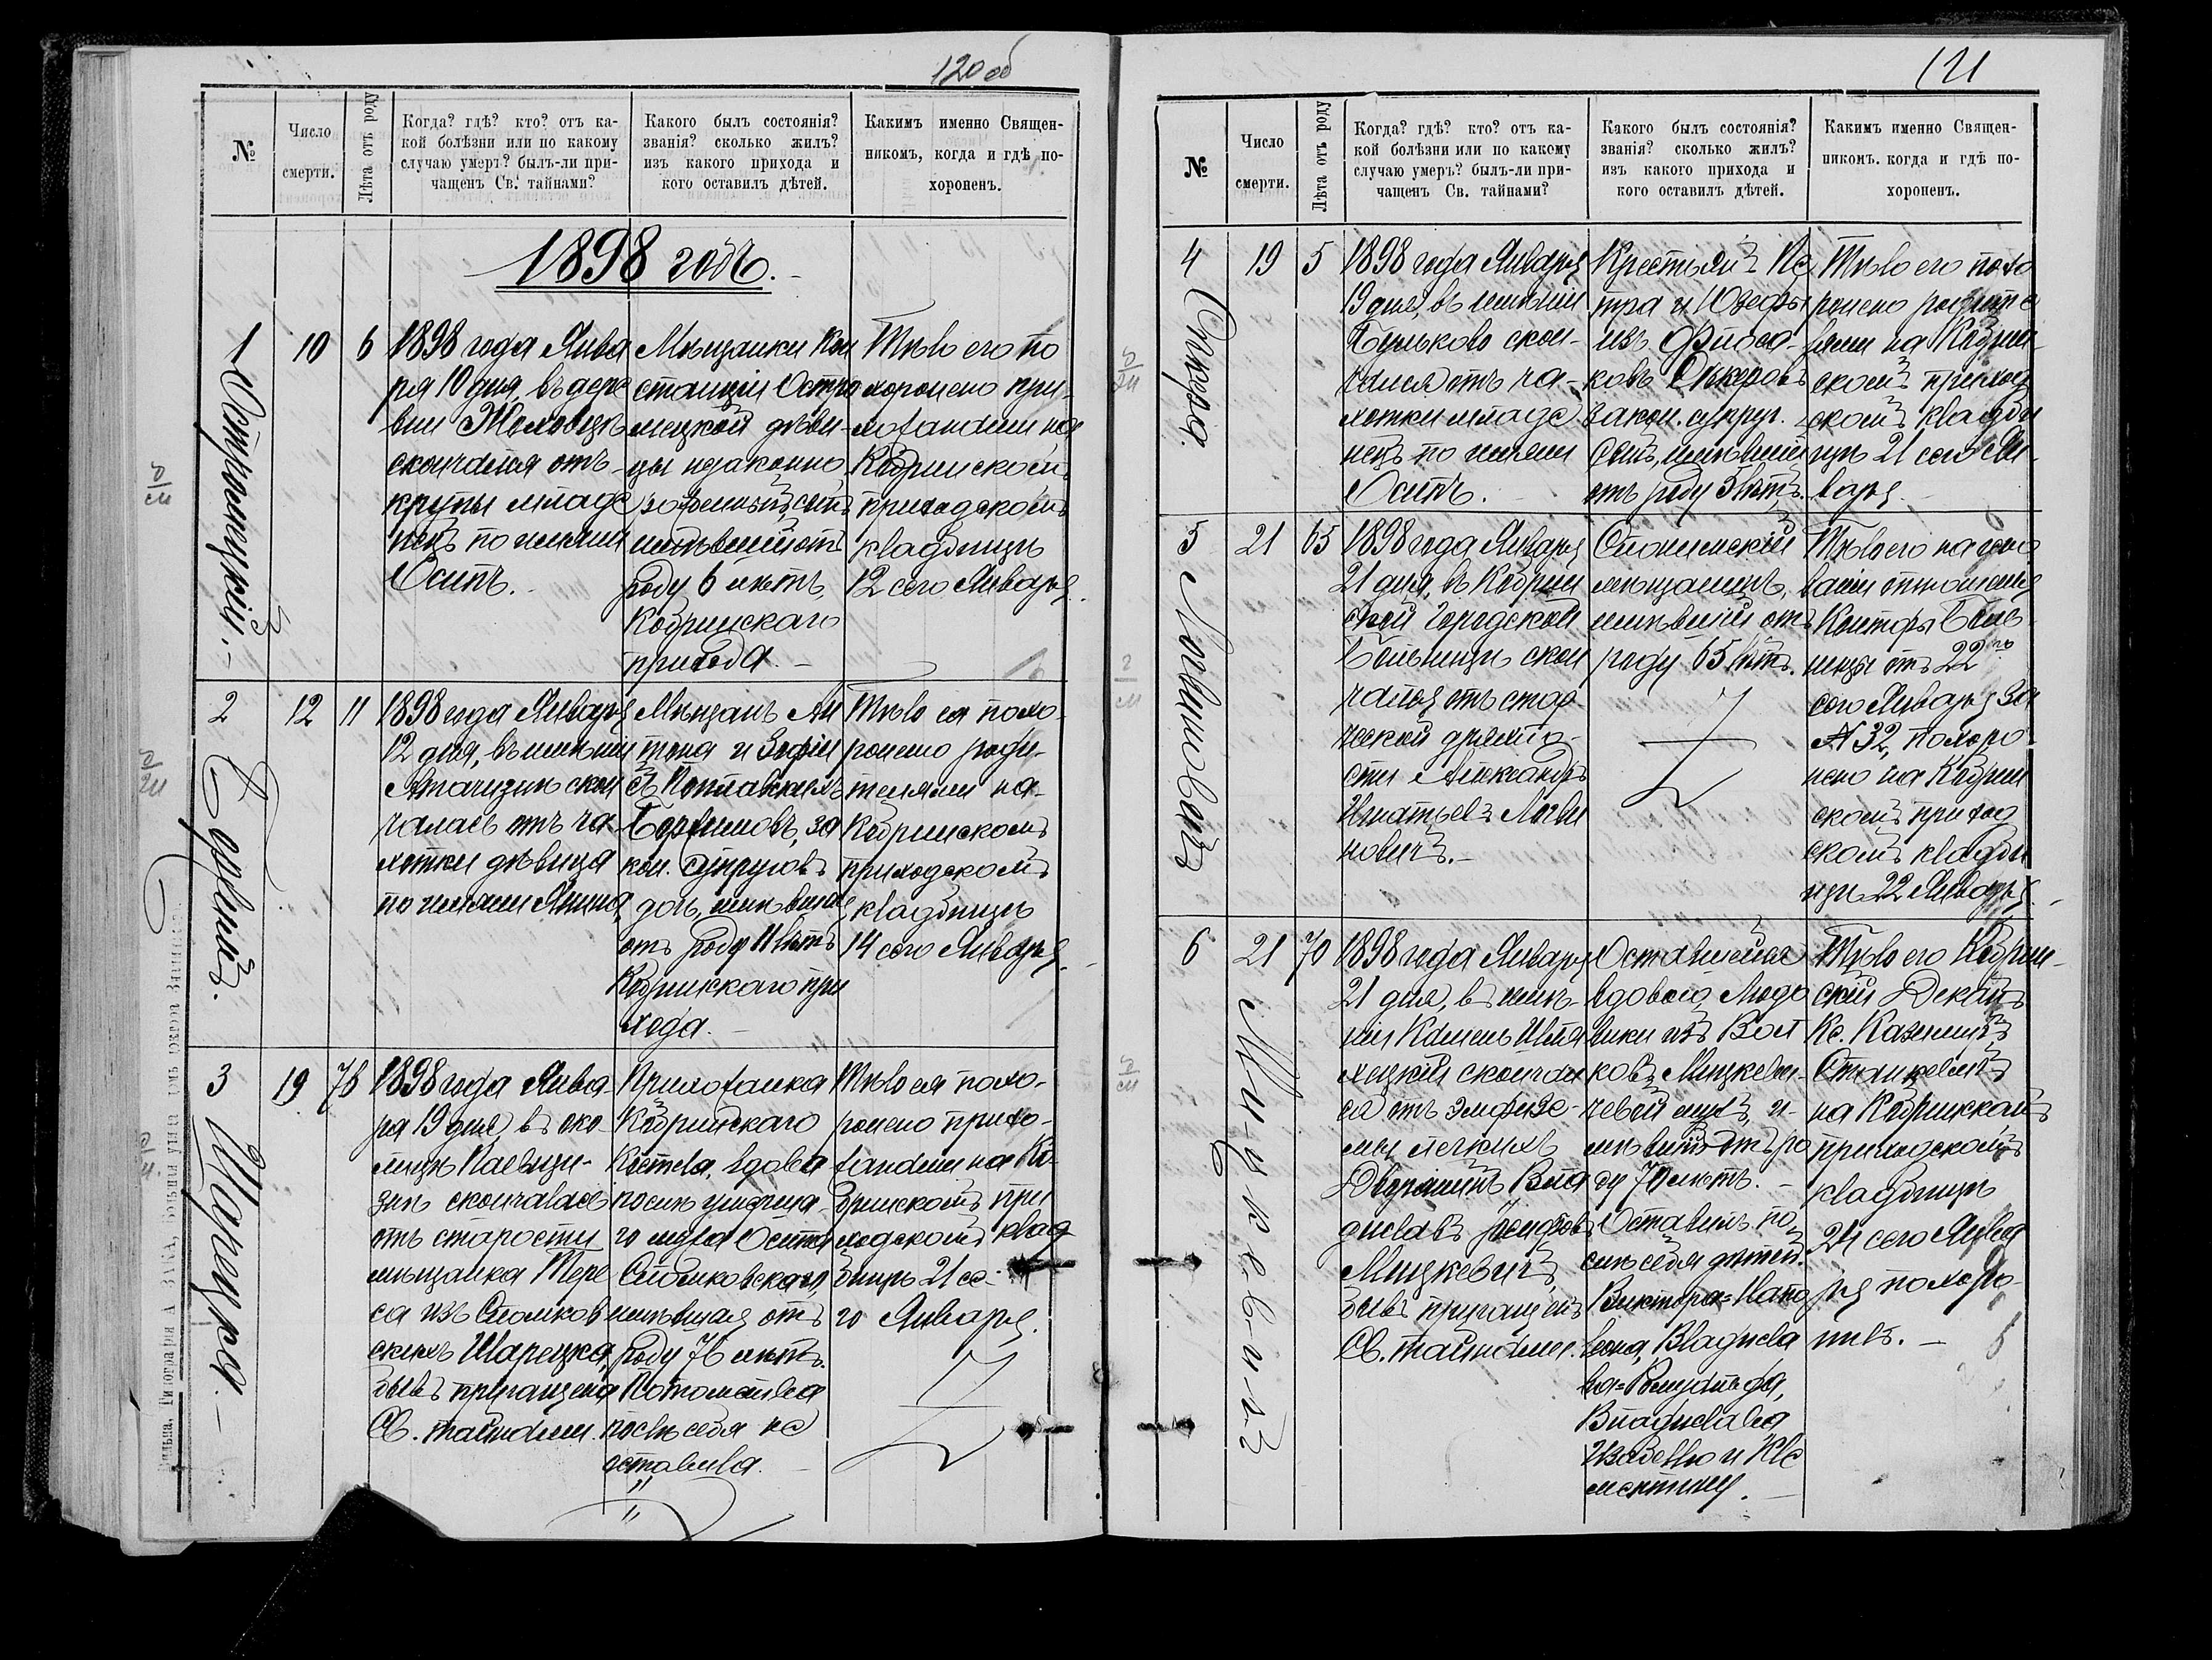 120 об
№
Число
смерти.
Лѣта отъ роду
Когда? гдѣ? кто? отъ ка-
кой болѣзни или по какому
случаю умеръ? былъ-ли при-
чащенъ Св. тайнами?
Какого былъ состоянія?
званія? сколько жилъ?
изъ какого прихода и
кого оставилъ дѣтей.
Какимъ именно Священ-
никомъ, когда и гдѣ по-
хороненъ.
1898 годъ.
1
Остромецкій.
10
6
1898 года Янва
ря 10 дня, въ дере
вни
скончался отъ
крупы младе
нецъ по имени
Осипъ.
Мѣщанки Кон
станціи Остро
мецкой дѣви-
цы незаконно
рожденный, сынъ
имѣвшій отъ
роду 6 лѣтъ
Кобринскаго
прихода.
Тѣло его по
хоронено при-
хожанами на
Кобринскомъ
приходскомъ
кладбищѣ
12 сего Января.
2
12
11
1898 года Января
12 дня, въ имѣніи
скон
чалась отъ ча
хотки дѣвица
по имени Янина
Мѣщанъ Ан
тона и Зофіи
съ
законъ
кон. супруговъ
дочь, имѣвшая
отъ роду 11 лѣтъ
Кобринскаго при
хода.
Тѣло ея похо-
ронено роди-
телями на
Кобринскомъ
приходскомъ
кладбищѣ
14 сего Января.
3
Шарецка
19
76
1898 года Янва-
ря 19 дня, въ око
лицѣ
скончалась
отъ старости
мѣщанка Тере
са изъ Сломков
скихъ Шарецка,
бывъ пріча­щена
Св. тайнами.
Прихожанка
Кобринскаго
Костела, вдова
послѣ умерша-
го мужа Осипа
Сломковская,
имѣвшая отъ
роду 76 лѣтъ.
Потомства
послѣ себя не
оставила.
Тѣло ея похо-
ронено прихо-
жанами на Ко-
бринскомъ при
ходскомъ клад
бищѣ 21 се-
го Января.
121
№
Число
смерти.
Лѣта отъ роду
Когда? гдѣ? кто? отъ ка-
кой болѣзни или по какому
случаю умеръ? былъ-ли при-
чащенъ Св. тайнами?
Какого былъ состоянія?
званія? сколько жилъ?
изъ какого прихода и
кого оставилъ дѣтей.
Какимъ именно Священ-
никомъ. когда и гдѣ по-
хороненъ.
4
19
5
1898 года Января
19 дня, въ имѣніи
скон-
чался отъ ча-
хотки младе
нецъ по имени
Осипъ.
Крестьянъ Пе
тра и Юзефы
изъ
ковъ
закон. супруг.
сынъ, имѣвшій
отъ роду 5 лѣтъ.
Тѣло его похо
ронено родите
лями на Кобрин-
скомъ приход
скомъ кладби
щѣ 21 сего Ян-
варя.
5
Логиновичъ
21
65
1898 года Января
21 дня, въ Кобрин
ской Городской
Больницѣ скон
чался отъ стар
ческой дряхло-
сти Александръ
Игнатьевъ Логи
новичъ.
Слонимскій
мѣщанинъ,
имѣвшій отъ
роду 65 лѣтъ.
Тѣло его на осно
ваніи отношенія
Конторы Боль
ницы отъ 22го
сего Января за
№ 32, похоро
нено на Кобрин
скомъ приход
скомъ кладби
щѣ 22 Января.
6
Мицкевичъ
21
70
1898 года Января
21 дня, въ имѣ-
ніи Камень Шля
хецкій скончал
ся отъ эмфизе-
мы легкихъ
Дворянинъ Вла
диславъ
Мицкевичъ,
бывъ пріча­щенъ
Св. тайнами.
Оставшейся
вдовою Людо
вики изъ Вол
ковъ Мицкеви-
чевой мужъ, и-
мѣвшій отъ ро
ду 70 лѣтъ.
Оставилъ по
слѣ себя дѣтей:
Виктора=Напо
леона, Владисла
ва=
Владислава
Изабеллю и Кле
ментину.
Тѣло его Кобрин-
скій Деканъ
Кс. Казимиръ
Станкевичъ
на Кобринскомъ
приходскомъ
кладбищѣ
24 сего Янва
ря похоро-
нилъ.